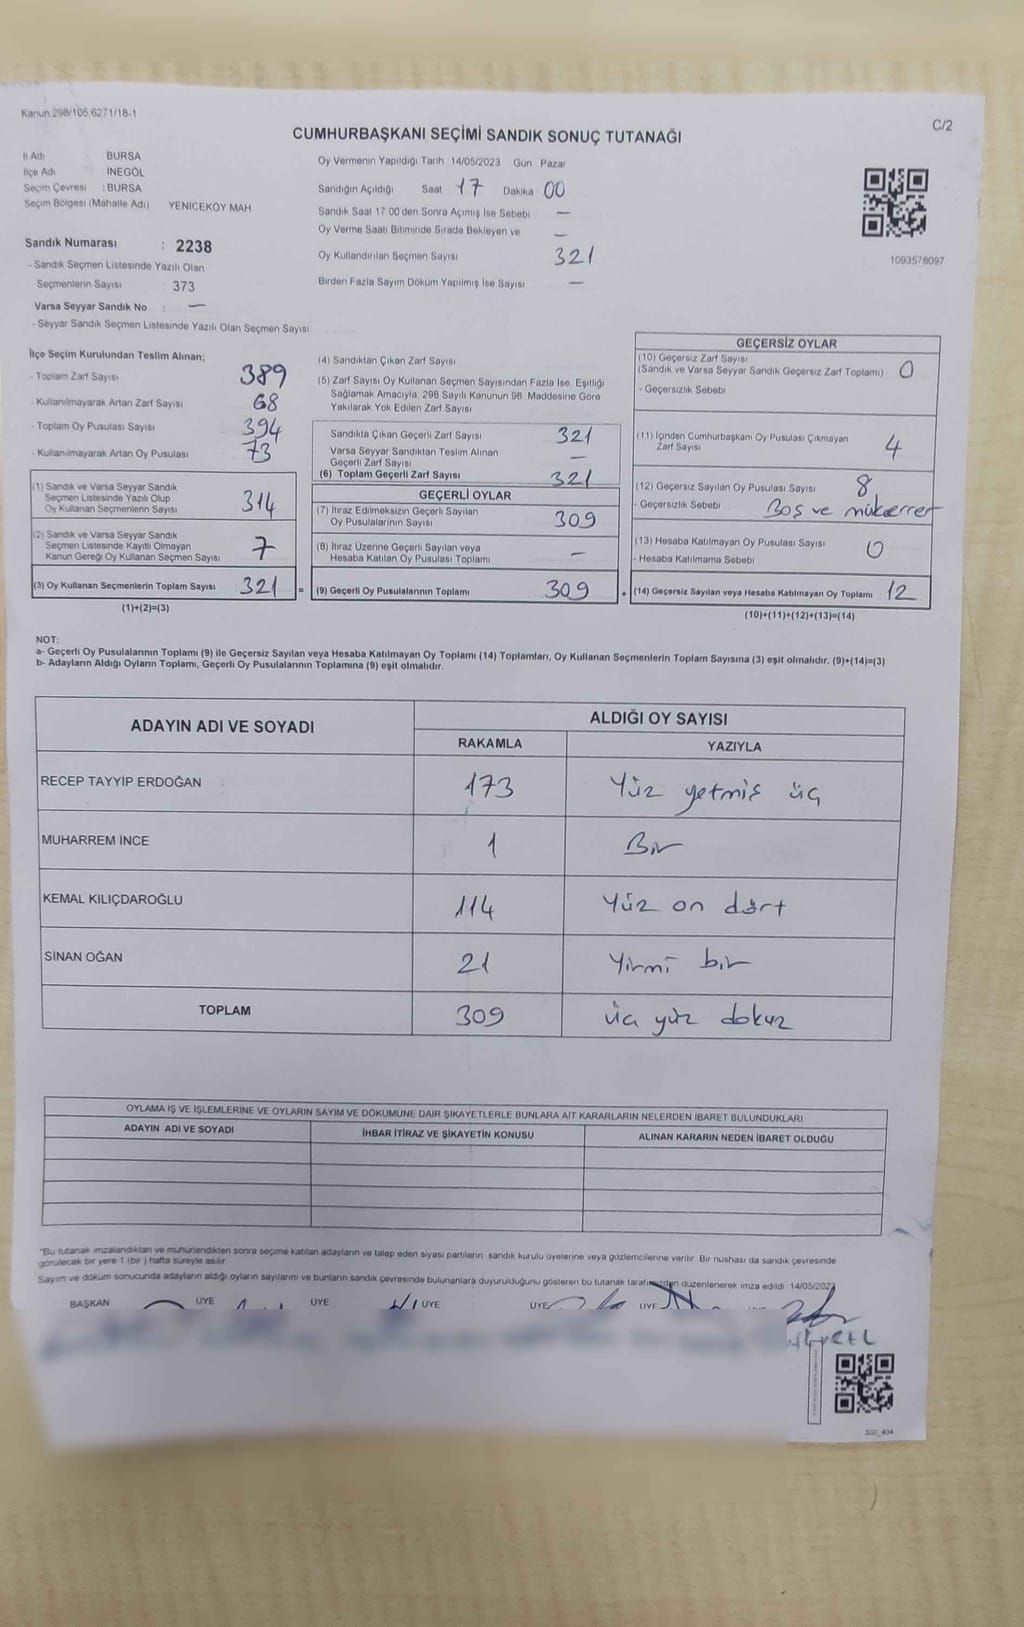 Kanun 298/105,6271/18-1
C/2
CUMHURBAŞKANI SEÇİMİ SANDIK SONUÇ TUTANAĞI
İl Adı BURSA
İlçe Adı İNEGÖL
Seçim Çevresi : BURSA
Seçim Bölgesi (Mahalle Adı) YENİCEKÖY MAH
Sandık Numarası : 2238
- Sandık Seçmen Listesinde Yazılı Olan
Seçmenlerin Sayısı : 373
Varsa Seyyar Sandık No : —
- Seyyar Sandık Seçmen Listesinde Yazılı Olan Seçmen Sayısı
Oy Vermenin Yapıldığı Tarih 14/05/2023 Gün Pazar
Sandığın Açıldığı Saat 17 Dakika 00
Sandık Saat 17:00'den Sonra Açımış İse Sebebi —
Oy Verme Saati Bitiminde Sırada Bekleyen ve —
Oy Kullandırılan Seçmen Sayısı 321
Birden Fazla Sayım Döküm Yapılmış İse Sayısı —
1093578097
İlçe Seçim Kurulundan Teslim Alınan;
- Toplam Zarf Sayısı 389
- Kullanılmayarak Artan Zarf Sayısı 68
- Toplam Oy Pusulası Sayısı 394
- Kullanılmayarak Artan Oy Pusulası 73
(1) Sandık ve Varsa Seyyar Sandık
Seçmen Listesinde Yazılı Olup
Oy Kullanan Seçmenlerin Sayısı 314
(2) Sandık ve Varsa Seyyar Sandık
Seçmen Listesinde Kayıtlı Olmayan
Kanun Gereği Oy Kullanan Seçmen Sayısı 7
(3) Oy Kullanan Seçmenlerin Toplam Sayısı 321 =
(1)+(2)=(3)
(4) Sandıktan Çıkan Zarf Sayısı
(5) Zarf Sayısı Oy Kullanan Seçmen Sayısından Fazla İse, Eşitliği
Sağlamak Amacıyla, 298 Sayılı Kanunun 98. Maddesine Göre
Yakılarak Yok Edilen Zarf Sayısı
Sandıkta Çıkan Geçerli Zarf Sayısı 321
Varsa Seyyar Sandıktan Teslim Alınan
Geçerli Zarf Sayısı —
(6) Toplam Geçerli Zarf Sayısı 321
GEÇERLİ OYLAR
(7) İtiraz Edilmeksizin Geçerli Sayılan
Oy Pusulalarının Sayısı 309
(8) İtiraz Üzerine Geçerli Sayılan veya
Hesaba Katılan Oy Pusulası Toplamı —
(9) Geçerli Oy Pusulalarının Toplamı 309 +
GEÇERSİZ OYLAR
(10) Geçersiz Zarf Sayısı
(Sandık ve Varsa Seyyar Sandık Geçersiz Zarf Toplamı) 0
- Geçersizlik Sebebi
(11) İçinden Cumhurbaşkanı Oy Pusulası Çıkmayan
Zarf Sayısı 4
(12) Geçersiz Sayılan Oy Pusulası Sayısı 8
- Geçersizlik Sebebi Boş ve mükerrer
(13) Hesaba Katılmayan Oy Pusulası Sayısı 0
- Hesaba Katılmama Sebebi
(14) Geçersiz Sayılan veya Hesaba Katılmayan Oy Toplamı 12
(10)+(11)+(12)+(13)=(14)
NOT:
a- Geçerli Oy Pusulalarının Toplamı (9) ile Geçersiz Sayılan veya Hesaba Katılmayan Oy Toplamı (14) Toplamları, Oy Kullanan Seçmenlerin Toplam Sayısına (3) eşit olmalıdır. (9)+(14)=(3)
b- Adayların Aldığı Oyların Toplamı, Geçerli Oy Pusulalarının Toplamına (9) eşit olmalıdır.
ADAYIN ADI VE SOYADI ALDIĞI OY SAYISI
RAKAMLA YAZIYLA
RECEP TAYYİP ERDOĞAN 173 Yüz yetmiş üç
MUHARREM İNCE 1 Bir
KEMAL KILIÇDAROĞLU 114 Yüz on dört
SİNAN OĞAN 21 Yirmi bir
TOPLAM 309 üç yüz dokuz
OYLAMA İŞ VE İŞLEMLERİNE VE OYLARIN SAYIM VE DÖKÜMÜNE DAİR ŞİKAYETLERLE BUNLARA AİT KARARLARIN NELERDEN İBARET BULUNDUKLARI
ADAYIN ADI VE SOYADI İHBAR İTİRAZ VE ŞİKAYETİN KONUSU ALINAN KARARIN NEDEN İBARET OLDUĞU
*Bu tutanak imzalandıktan ve mühürlendikten sonra seçime katılan adayların ve talep eden siyasi partilerin sandık kurulu üyelerine veya gözlemcilerine verilir. Bir nüshası da sandık çevresinde
görülecek bir yere 1 (bir) hafta süreyle asılır.
Sayım ve döküm sonucunda adayların aldığı oyların sayılarını ve bunların sandık çevresinde bulunanlara duyurulduğunu gösteren bu tutanak tarafımızdan düzenlenerek imza edildi. 14/05/2023
BAŞKAN ÜYE ÜYE ÜYE ÜYE ÜYE